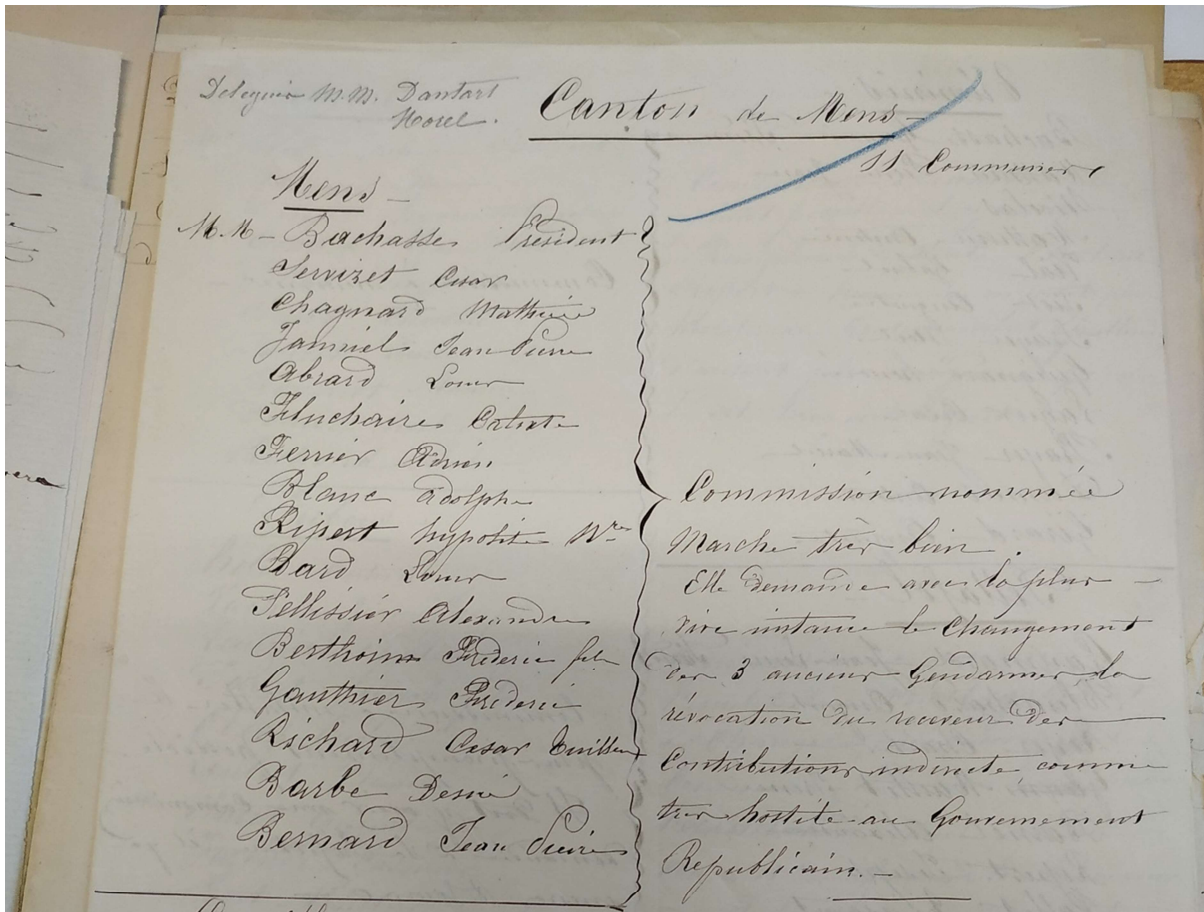 Délégués M.M. Dantart
Morel.
Canton de Mens -
11 Communes
Mens -
M.M - Bachasse Président
Servizet Cesar
Chagnard Mathieu
Janniel Jean Pierre
Abrard Louis
Fluchaire Calixte
Ferrier Adrien
Blanc adolphe
Ripert hypolite
Bard Louis
Pellissier Alexandre
Berthoin Frédéric fils
Gauthier Frédéric
Richard Cesar
Barbe Desiré
Bernard Jean Pierre
Commission nommée
Marche très bien.
Elle demande avec la plus
vive instance le changement
des 3 anciens Gendarmes, la
révocation du receveur des
Contributions indirectes comme
très hostile au Gouvernement
Republicain. -